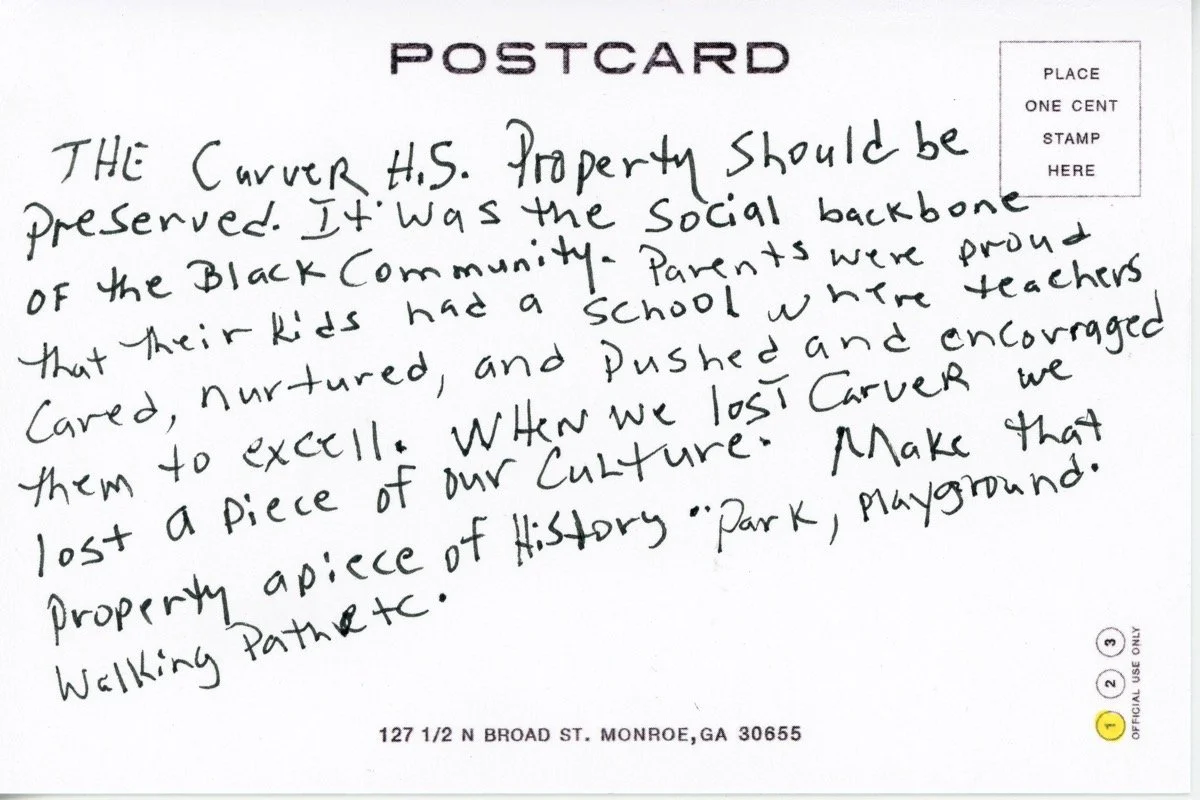 POSTCARD
PLACE
ONE CENT
STAMP
HERE
THE Carver H.S. Property should be
preserved. It was the social backbone
of the Black Community. Parents were proud
that their kids had a school where teachers
Cared, nurtured, and pushed and encouraged
them to excell. WHEN we lost Carver we
lost a piece of our Culture. Make that
property a piece of History "Park, playground.
Walking Path etc.
127 1/2 N BROAD ST. MONROE,GA 30655
1 2 3
OFFICIAL USE ONLY